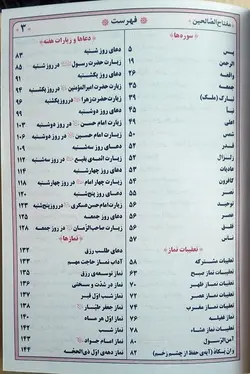 مفتاح الصالحین
فهرست
۳
سوره‌ها
یس ۵
الرحمن ۱۹
واقعه ۲۶
جمعه ۳۳
تبارک (ملک) ۳۹
نبأ ۴۵
اعلی ۴۹
شمس ۵۰
قدر ۵۲
زلزال ۵۳
عادیات ۵۳
کافرون ۵۴
نصر ۵۵
توحید ۵۶
عصر ۵۶
فلق
ناس
تعقیبات نماز
تعقیبات مشترکه ۵۸
تعقیبات نماز صبح ۶۳
تعقیبات نماز ظهر ۷۰
تعقیبات نماز عصر ۷۲
تعقیبات نماز مغرب ۷۴
نماز غفیله ۷۶
تعقیبات نماز عشاء ۷۸
آمن الرسول ۸۰
وان یکاد (آیه‌ی حفظ از چشم زخم) ۸۲
دعاها و زیارات هفته
دعای روز شنبه ۸۳
زیارت حضرت رسول در روز شنبه ۸۵
دعای روز یکشنبه ۹۱
زیارت حضرت امیرالمؤمنین در روز یکشنبه ۹۴
زیارت حضرت زهرا در روز یکشنبه ۹۶
دعای روز دوشنبه ۹۹
زیارت امام حسن در روز دوشنبه
زیارت امام حسین در روز دوشنبه
دعای روز سه‌شنبه
زیارت ائمه‌ی بقیع در روز سه‌شنبه
دعای روز چهارشنبه
زیارت چهار امام در روز چهارشنبه
دعای روز پنج‌شنبه
زیارت امام حسن عسکری در روز پنج‌شنبه
دعای روز جمعه
زیارت صاحب‌الزمان در روز جمعه
نمازها
دعای طلب رزق ۱۳۲
آداب نماز حاجت مهم ۱۳۳
نماز توسعه‌ی رزق ۱۳۵
نماز در شدت و سختی ۱۳۶
نماز شب اول قبر ۱۳۷
نماز جعفر طیار ۱۳۸
نماز اول هر ماه ۱۴۰
نماز شب ۱۴۲
نماز امام جواد ۱۴۳
نماز دهه‌ی اول ذی‌الحجه ۱۴۴